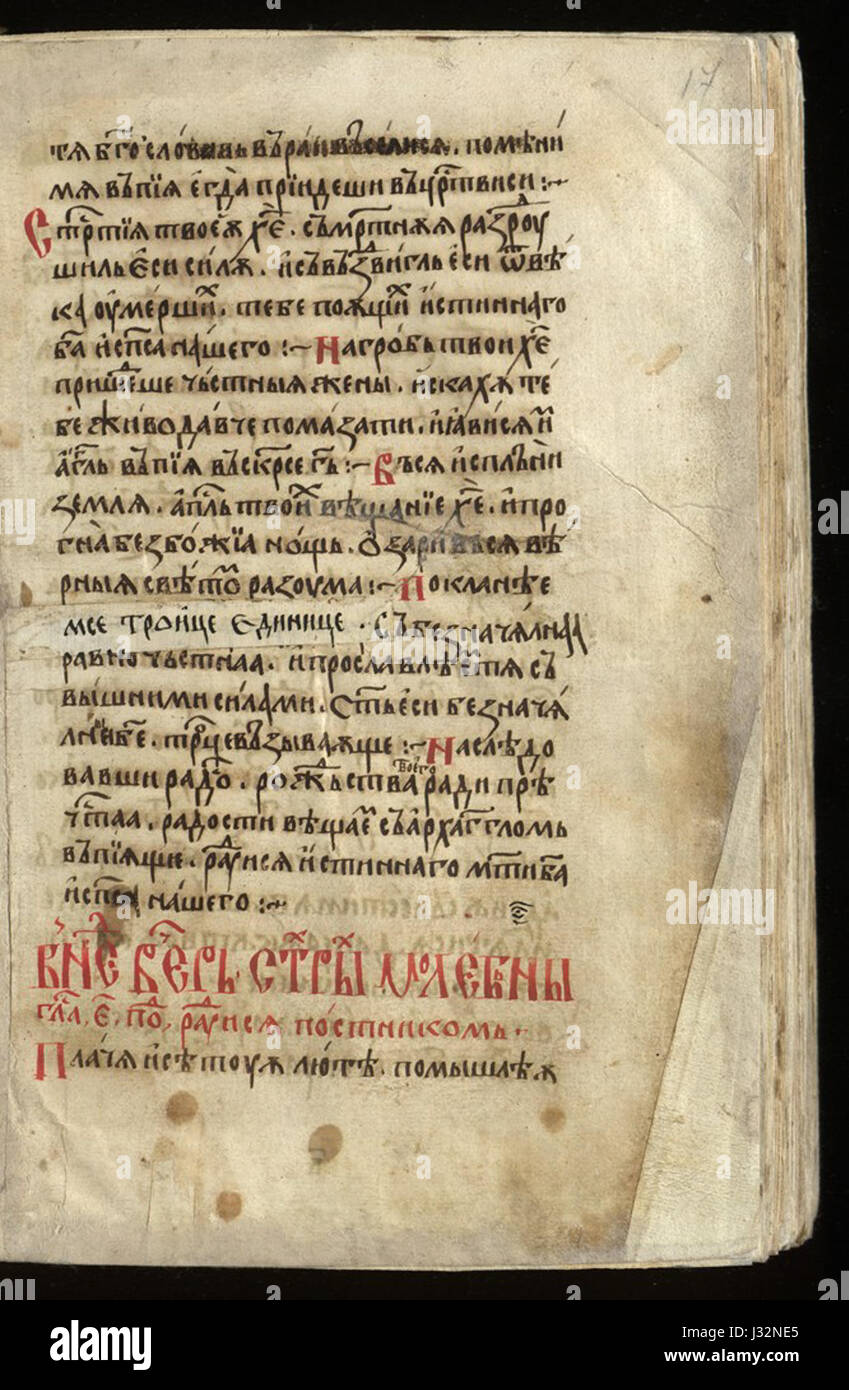 17
тѧ бг҃ословь въ раи въселисѧ. помѣни
мѧ въпїѧ егда прїидеши въ црⷭ҇твиси :~
Стрⷭ҇тїѧ твоеѧ хе҃. съмрⷮ҇тнѫѧ разрⷣоу
шиль еси силѫ. и съвъзⷣвигль еси ѿ вѣ
ка оумершиⷯ. тебе поѫщиⷯ истиннаго
ба҃ исп҃са нашего :~ На гробь твои хе҃
пришеⷣше чьстныѧ жены. искахѫ те
бе живодавче помазати. и ꙗвисѧ и
аг҃гль въпїѧ въскр҃се г҃ь :~ Въсѧ исплъни
землѧ. апⷭ҇ль твоиⷯ вѣщанїе хе҃. и про
гна безбожїа нощь. озари въсѧ вѣ
рныѧ свѣтоⷨ разоума :~ Покланѣе
мсе троице единице. съ безначѧлнаа
равночьстнаа. и прославлѣетѧ съ
вышними силами. ст҃ь еси безначѧ
лныи бе҃. трⷪ҇це възываѫще :~ Наслѣдо
вавши радⷭ҇о. рожⷣьства твоего ради прѣ
чⷭ҇таа. радости вѣщаеⷨ съ арханг҃гломь
въпїѫще. раⷣуисѧ истиннаго мт҃и ба҃
исп҃са нашего :~
В не҃ вⷱ҇ерь. стⷯры молебны
глⷭ҇а, е҃, поⷣ, раⷣуисѧ постникомь.
Плачѫ и сѣтоуѫ лютѣ. помышлѣѫ
alamy
J32NE5
www.alamy.com